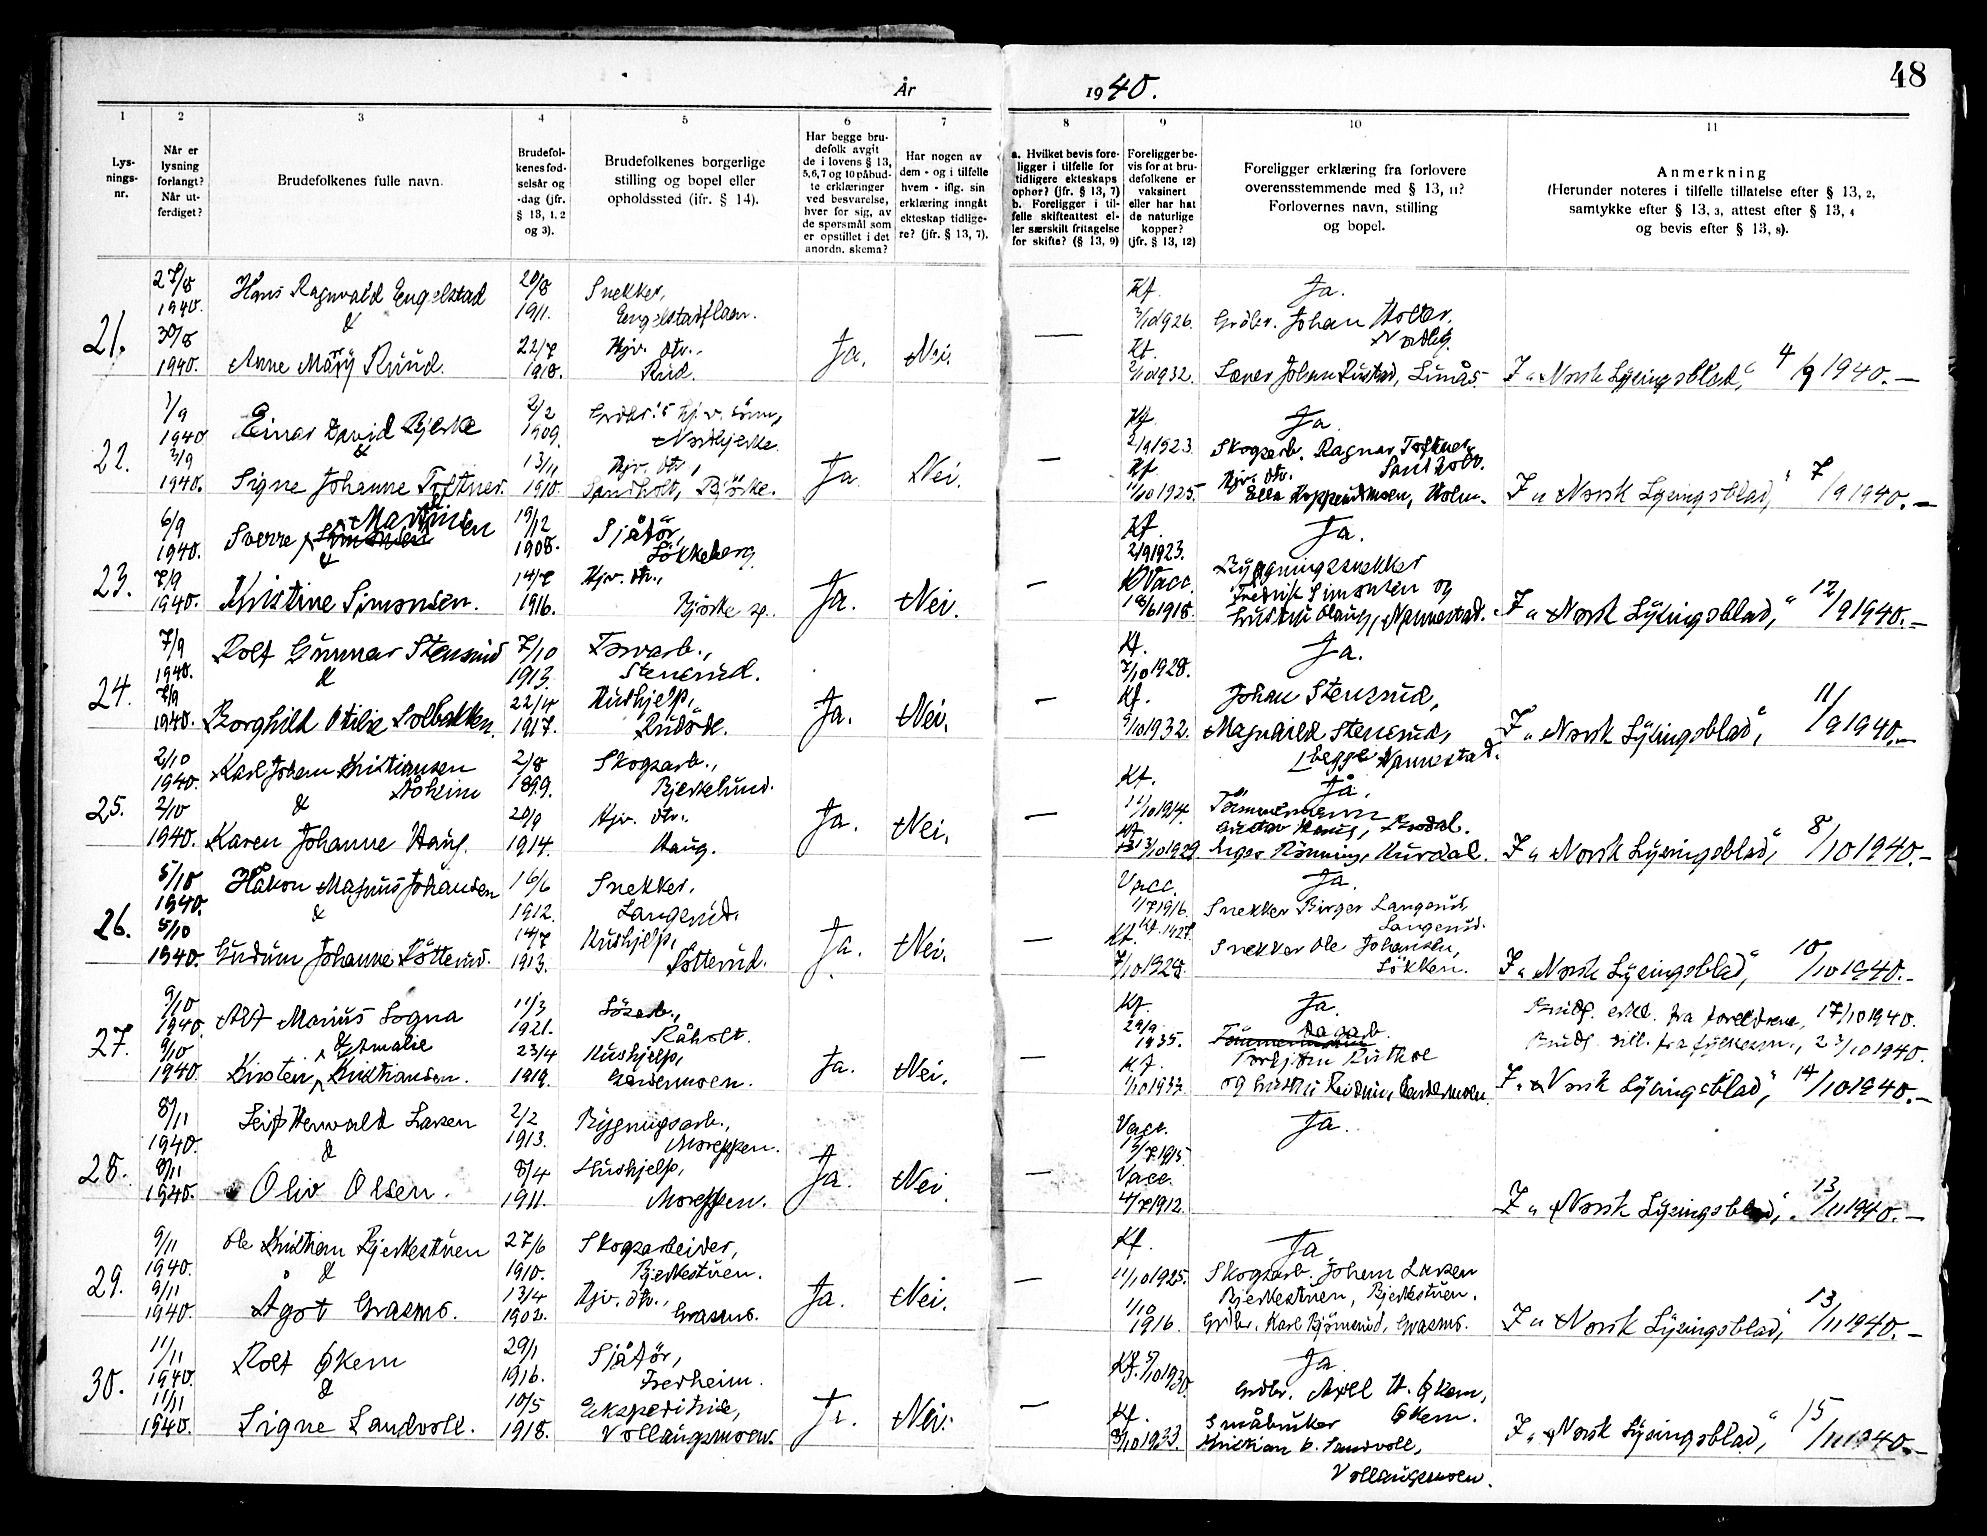 48
År 1940.
1 2 3 4 5 6 7 8 9 10 11
Lys-
nings-
nr.
Når er
lysning
forlangt?
Når ut-
ferdiget?
Brudefolkenes fulle navn.
Brudefol-
kenes fød-
selsår og
-dag (jfr.
§ 13, 1, 2
og 3).
Brudefolkenes borgerlige
stilling og bopel eller
opholdssted (ifr. § 14).
Har begge bru-
defolk avgit
de i lovens § 13,
5,6,7 og 10 påbud-
te erklæringer
ved besvarelse,
hver for sig, av
de spørsmål som
er opstillet i det
anordn. skema?
Har nogen av
dem - og i tilfelle
hvem - iflg. sin
erklæring inngåt
ekteskap tidlige-
re? (jfr. § 13, 7).
a. Hvilket bevis fore-
ligger i tilfelle for
tidligere ekteskaps
ophør? (jfr. § 13, 7)
b. Foreligger i til-
felle skifteattest el-
ler særskilt fritagelse
for skifte? (§ 13, 9)
Foreligger be-
vis for at bru-
defolkene er
vaksinert
eller har hat
de naturlige
kopper?
(jfr. § 13, 12)
Foreligger erklæring fra forlovere
overensstemmende med § 13, 11?
Forlovernes navn, stilling
og bopel.
Anmerkning
(Herunder noteres i tilfelle tillatelse efter § 13, 2,
samtykke efter § 13, 3, attest efter § 13, 4
og bevis efter § 13, 8).
27/8 Hans Ragnvald Engelstad 20/8 Snekker, Kf. Ja.
1940. & 1911. Engelstadflaen. 3/10 1926. Grdbr. Johan Holter.
21. 30/8 22/7 Hjv. dtr., Ja. Nei. — Kf. Nordby.
1940. Anne Mary Ruud. 1918. Rud. 2/10 1932. Johan Rustad, Lunås. I „Norsk Lysingsblad," 4/9 1940.—
1/9 Einar David Bjerke 2/2 Kf. Ja.
1940 & 1909. Nordbjerke. 2/9 1923. Skogsarb. Ragnar Toftner
22. 2/9 13/11 Hjv. dtr., Ja Nei. — Kf. Hjv. dtr. Sandholt.
1940. Signe Johanne Toftner. 1910. Sandholt, Bjerke. 11/10 1925. Holm. I „Norsk Lysingsblad," 7/9 1940.—
6/9 Martinsen 19/12 Sjåfør, Kf. Ja.
1940. Sverre Simonsen & 1908. Løkkeberg. 2/9 1923. Bygningssnekker
23. 7/9 14/7 Hjv. dtr., Ja. Nei. — Vacc. Fredrik Simonsen og
1940. Kristine Simonsen. 1916. Bjerke sp. 18/6 1918. hustru Olaug, Nannestad. I „Norsk Lysingsblad," 12/9 1940.—
7/9 Rolf Gunnar Stensrud 7/10 Kf. Ja.
1940. & 1913. Stensrud. 7/10 1928.
24. 7/9 22/4 Hushjelp, Ja. Nei. — Kf. Johan Stensrud,
1940. Borghild Otilie Solbakken. 1917. 9/10 1932. Magnhild Stensrud, I „Norsk Lysingsblad," 11/9 1940.—
begge Nannestad.
2/10 Karl Johan Kristiansen 2/8 Skogsarb., Kf. Ja.
1940. Åsheim & 1899. Bjerkelund. 11/10 1914. Tømmermann
25. 2/10 20/9 Hjv. dtr. Ja. Nei. — Kf. Gustav Haug, Hurdal.
1940. Karen Johanne Haug. 1914. Haug. 13/10 1929. Rønning, Hurdal. I „Norsk Lysingsblad," 8/10 1940.—
5/10 Håkon Magnus Johansen 16/6 Snekker, Vacc. Ja.
1940. & 1912. Langerud. 1/7 1916. Snekker Birger Langerud
26. 5/10 14/7 Hushjelp, Ja. Nei. — Kf. Langerud.
1940. Gudrun Johanne Røtterud. 1913. Røtterud. 7/10 1928. Snekker Ole Johansen, Løkken. I „Norsk Lysingsblad," 10/10 1940.—
9/10 Alf Marius Sogna 11/3 Kf. Ja. fra foreldrene, 17/10 1940.
1940. & 1921. Råholt. 29/9 1935. fra fylkesm., 23/10 1940.
27. 9/10 Amalie 23/4 Hushjelp, Ja. Nei. — Kf. Torbjørn
1940. Kirsten Kristiansen. 1919. Gardermoen. 1/10 1933. og hustru Reidun, Gardermoen. I „Norsk Lysingsblad," 14/10 1940.—
8/11 Leif Henvald Larsen 2/2 Bygningsarb., Vacc. Ja.
1940. & 1913. Moreppen. 13/7 1915.
28. 8/11 8/4 Hushjelp, Ja. Nei — Vacc.
1940. Oliv Olsen. 1911. Moreppen. 4/7 1912. I „Norsk Lysingsblad," 13/11 1940.—
9/11 Ole Kristian Bjerkestuen 27/6 Skogsarbeider, Kf. Ja
1940. & 1910. Bjerkestuen. 11/10 1925. Skogsarb. Johan Larsen
29. 9/11 13/4 Hjv. dtr., Ja. Nei. — 1/10 Bjerkestuen, Bjerkestuen.
1940. Ågot Grasmo. 1902. Grasmo. 1916. Grdbr. Karl Bjørnerud, Grasmo. I „Norsk Lysingsblad," 13/11 1940.—
11/11 Rolf Økern 29/1 Sjåfør, Kf. Ja
1940. & 1916. Fredheim. 5/10 1930. Grdbr. Axel H. Økern,
30. 11/11 10/5 Ekspeditrise, Ja. Nei. — Kf. Småbruker Økern.
1940. Signe Sandvoll. 1918. Vollaugsmoen. 8/10 1933. Kristian K. Sandvoll, I „Norsk Lysingsblad," 15/11 1940.—
Vollaugsmoen.